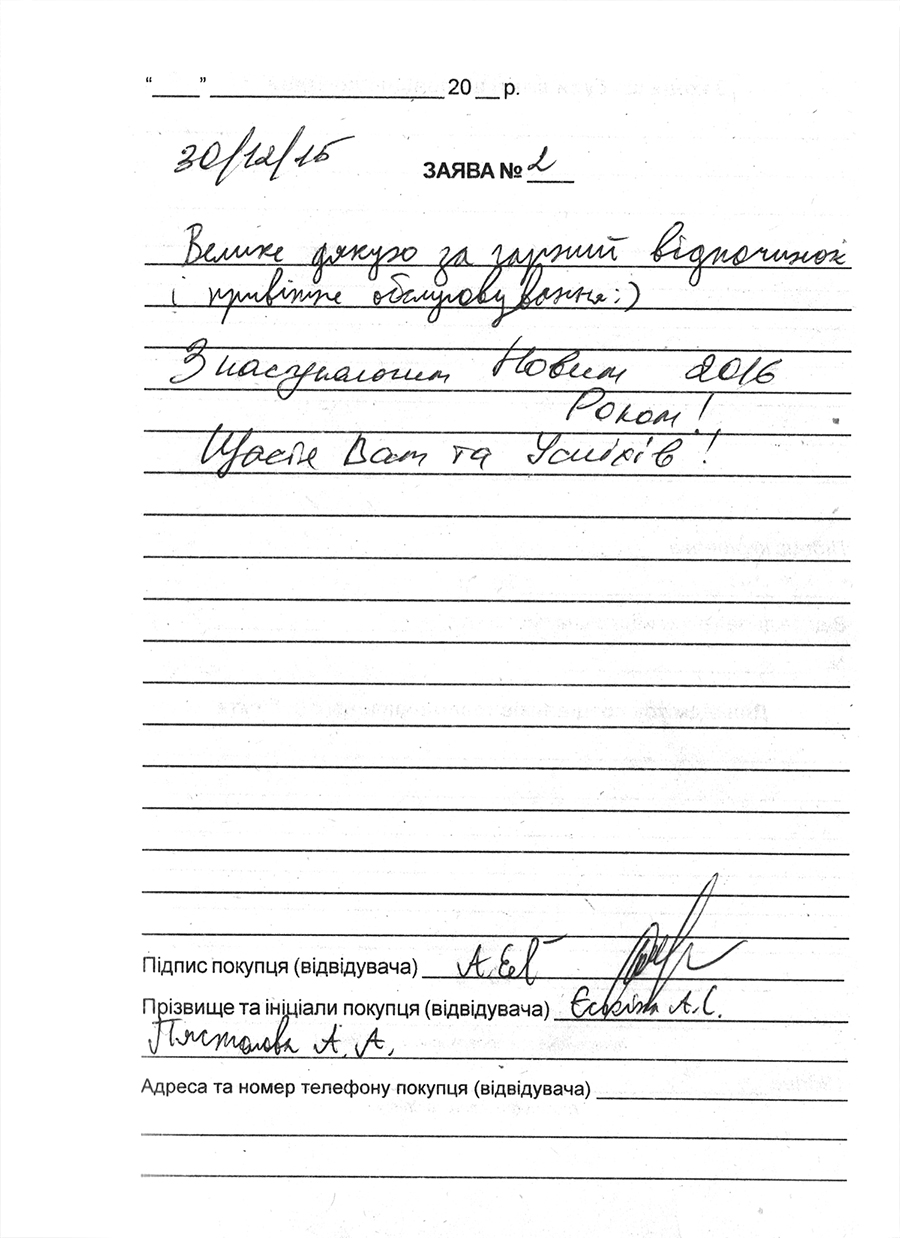 “____” ____________________ 20__ р.
30/12/15
ЗАЯВА № 2
Велике дякую за гарний відпочинок
і привітне обслуговування :)
З наступаючим Новим 2016
Роком!
Щастя Вам та Успіхів!
Підпис покупця (відвідувача)
Прізвище та ініціали покупця (відвідувача) Єськіна А.С.
А. А.
Адреса та номер телефону покупця (відвідувача)